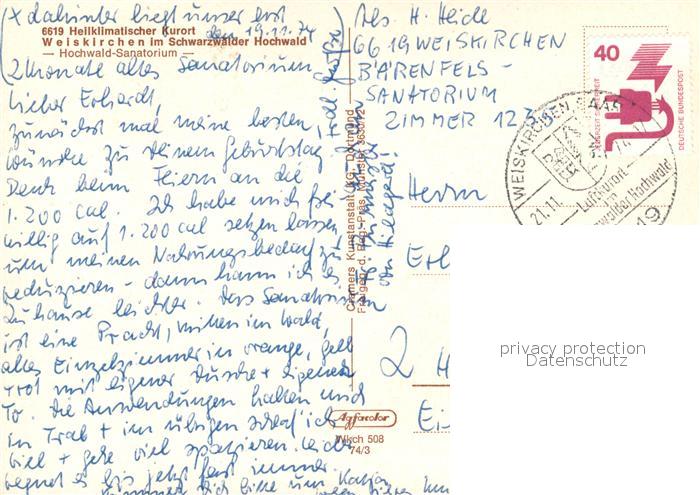 (+ dahinter liegt unser erst
6619 Heilklimatischer Kurort
den 19.11.74
Weiskirchen im Schwarzwälder Hochwald
— Hochwald-Sanatorium —
(2 Monate altes Sanatorium
Lieber Erhardt
zunächst mal meine besten
Wünsche zu Deinem Geburtstag
Denk beim Feiern an die
1.200 cal. Ich habe mich frei
willig auf 1.200 cal setzen lassen
um meinen Nahrungsbedarf zu
reduzieren – dann kann ich es
zuhause leichter. Das Sanatorium
ist eine Pracht, mitten im Wald,
alles Einzelzimmer in orange, gelb
+ rot mit eigener Dusche + eigenem
To. Die Anwendungen halten mich
in Trab + im übrigen schlaf ich
viel + gehe viel spazieren. Leider
regnet es bis jetzt fast immer.
bitte um
+ dl. Grüße
von Hildegard!
Cramers Kunstanstalt KG, Dortmund
Freigeg. d. Reg.-Präs. Münster
Agfacolor
Wkch 508
74/3
Abs. H. Heide
6619 WEISKIRCHEN
BÄRENFELS-
SANATORIUM
ZIMMER 123
40
JEDERZEIT SICHERHEIT
DEUTSCHE BUNDESPOST
WEISKIRCHEN, SAAR
21.11.
Luftkurort
im
Hochwald
Herrn
2 H
privacy protection
Datenschutz